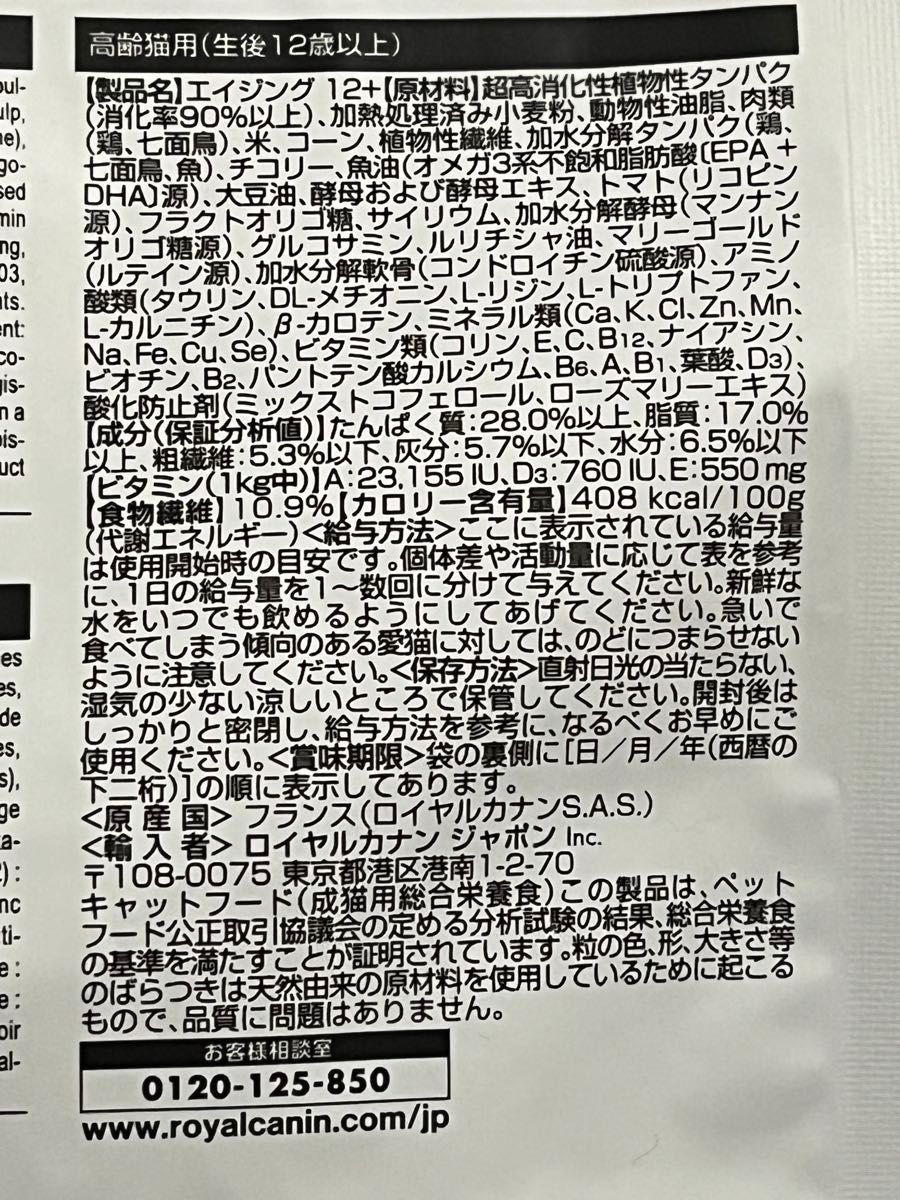 高齢猫用(生後12歳以上)
【製品名】エイジング 12+【原材料】超高消化性植物性タンパク
(消化率90%以上)、加熱処理済み小麦粉、動物性油脂、肉類
(鶏、七面鳥)、米、コーン、植物性繊維、加水分解タンパク(鶏、
七面鳥、魚)、チコリー、魚油(オメガ3系不飽和脂肪酸〔EPA +
DHA〕源)、大豆油、酵母および酵母エキス、トマト(リコピン
源)、フラクトオリゴ糖、サイリウム、加水分解酵母(マンナン
オリゴ糖源)、グルコサミン、ルリチシャ油、マリーゴールド
(ルテイン源)、加水分解軟骨(コンドロイチン硫酸源)、アミノ
酸類(タウリン、DL-メチオニン、L-リジン、L-トリプトファン、
L-カルニチン)、β-カロテン、ミネラル類(Ca、K、Cl、Zn、Mn、
Na、Fe、Cu、Se)、ビタミン類(コリン、E、C、B12、ナイアシン、
ビオチン、B2、パントテン酸カルシウム、B6、A、B1、葉酸、D3)、
酸化防止剤(ミックストコフェロール、ローズマリーエキス)
【成分(保証分析値)】たんぱく質:28.0%以上、脂質:17.0%
以上、粗繊維:5.3%以下、灰分:5.7%以下、水分:6.5%以下
【ビタミン(1kg中)】A:23,155 IU、D3:760 IU、E:550 mg
【食物繊維】10.9%【カロリー含有量】408 kcal/100g
(代謝エネルギー)<給与方法>ここに表示されている給与量
は使用開始時の目安です。個体差や活動量に応じて表を参考
に、1日の給与量を1~数回に分けて与えてください。新鮮な
水をいつでも飲めるようにしてあげてください。急いで
食べてしまう傾向のある愛猫に対しては、のどにつまらせない
ように注意してください。<保存方法>直射日光の当たらない、
湿気の少ない涼しいところで保管してください。開封後は
しっかりと密閉し、給与方法を参考に、なるべくお早めにご
使用ください。<賞味期限>袋の裏側に[日/月/年(西暦の
下二桁)]の順に表示してあります。
<原 産 国> フランス(ロイヤルカナンS.A.S.)
<輸 入 者> ロイヤルカナン ジャポン Inc.
〒108-0075 東京都港区港南1-2-70
キャットフード(成猫用総合栄養食)この製品は、ペット
フード公正取引協議会の定める分析試験の結果、総合栄養食
の基準を満たすことが証明されています。粒の色、形、大きさ等
のばらつきは天然由来の原材料を使用しているために起こる
もので、品質に問題はありません。
お客様相談室
0120-125-850
www.royalcanin.com/jp